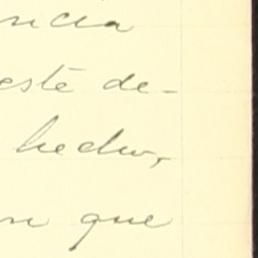 ncia
este de-
hecho,
n que